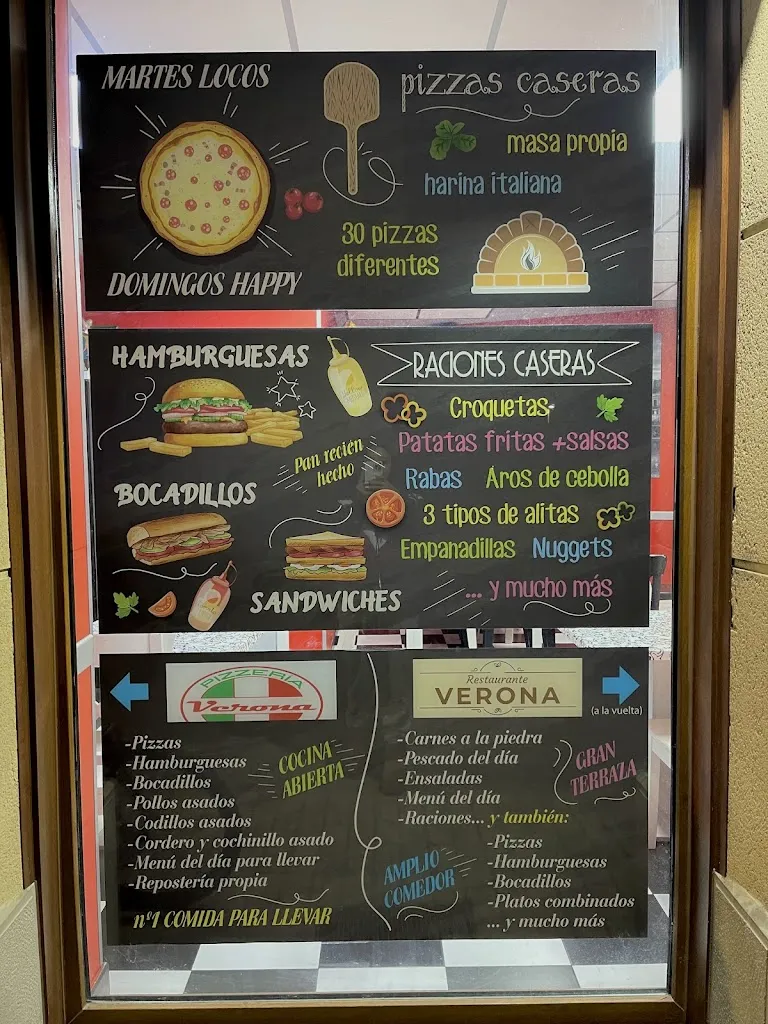 MARTES LOCOS
DOMINGOS HAPPY
pizzas caseras
masa propia
harina italiana
30 pizzas
diferentes
HAMBURGUESAS
Pan recién
hecho
BOCADILLOS
SANDWICHES
RACIONES CASERAS
Croquetas
Patatas fritas +salsas
Rabas Aros de cebolla
3 tipos de alitas
Empanadillas Nuggets
... y mucho más
PIZZERIA
Verona
-Pizzas
-Hamburguesas
-Bocadillos
-Pollos asados
-Codillos asados
-Cordero y cochinillo asado
-Menú del día para llevar
-Repostería propia
COCINA
ABIERTA
nº1 COMIDA PARA LLEVAR
Restaurante
VERONA
(a la vuelta)
-Carnes a la piedra
-Pescado del día
-Ensaladas
-Menú del día
-Raciones... y también:
-Pizzas
-Hamburguesas
-Bocadillos
-Platos combinados
... y mucho más
GRAN
TERRAZA
AMPLIO
COMEDOR